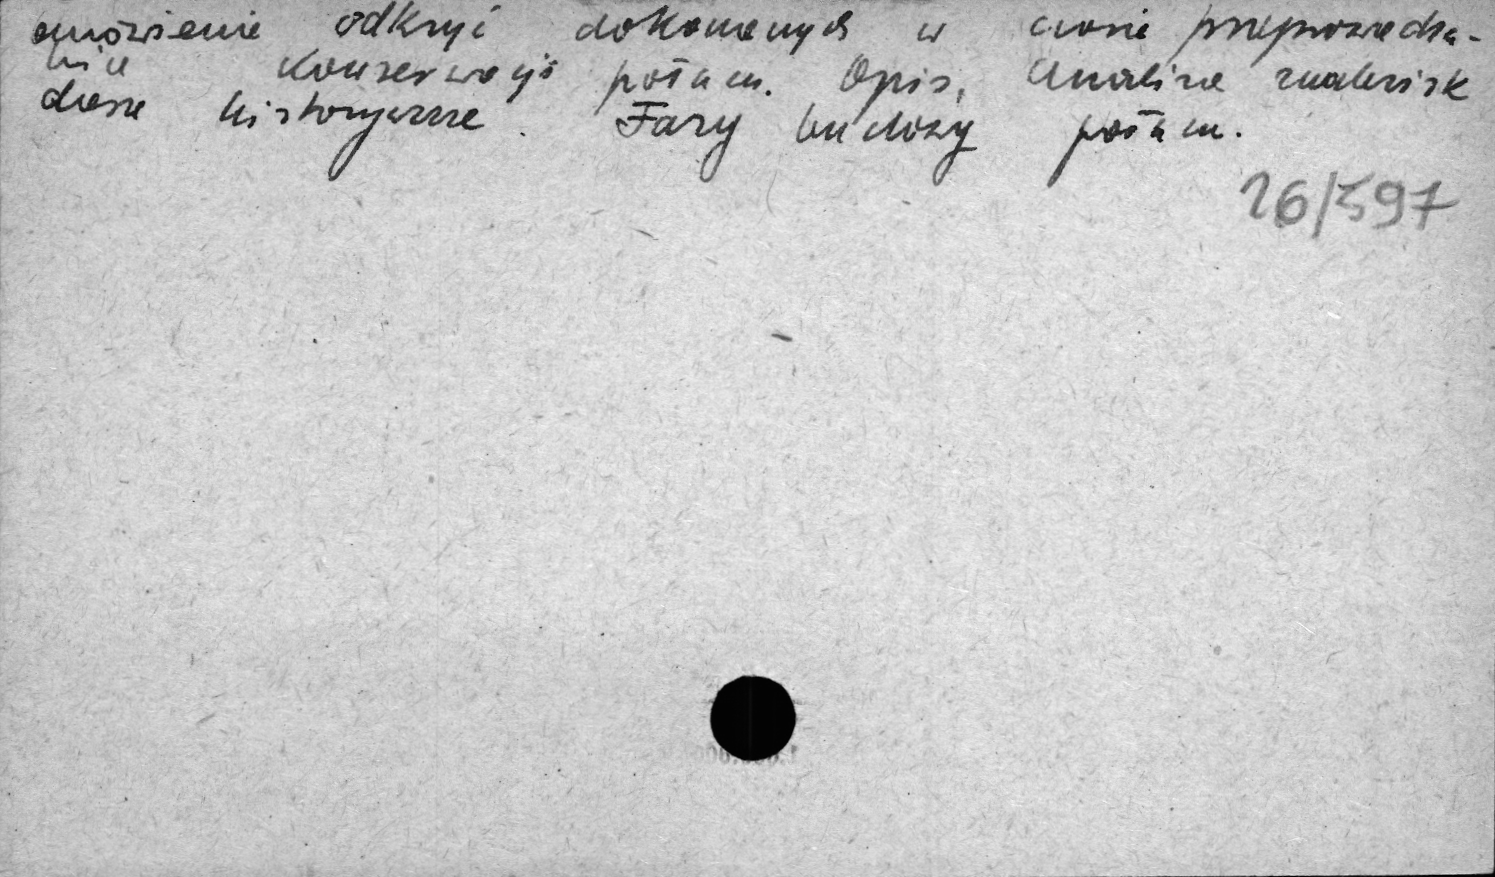 omówienie odkryć dokonanych w czasie przeprowadza-
nia konserwacji poszcz. Opis, analiza znalezisk
dane historyczne. Fazy budowy
26/597